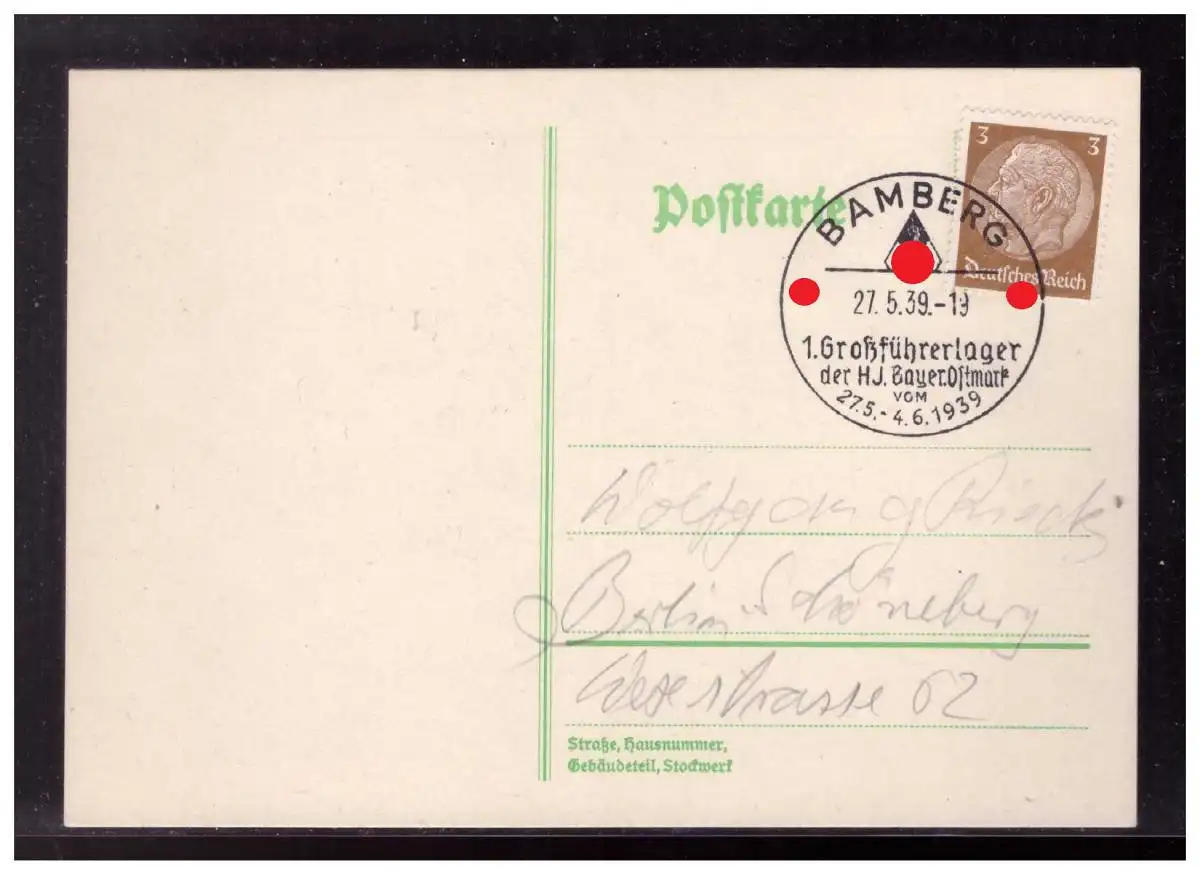 3 3
Postkarte
Deutsches Reich
BAMBERG
27.5.39.-19
1. Großführerlager
der HJ. Bayer. Ostmark
VOM
27.5.-4.6.1939
Wolfgang Rieck
Berlin-Schöneberg
strasse 62
Straße, Hausnummer,
Gebäudeteil, Stockwerk